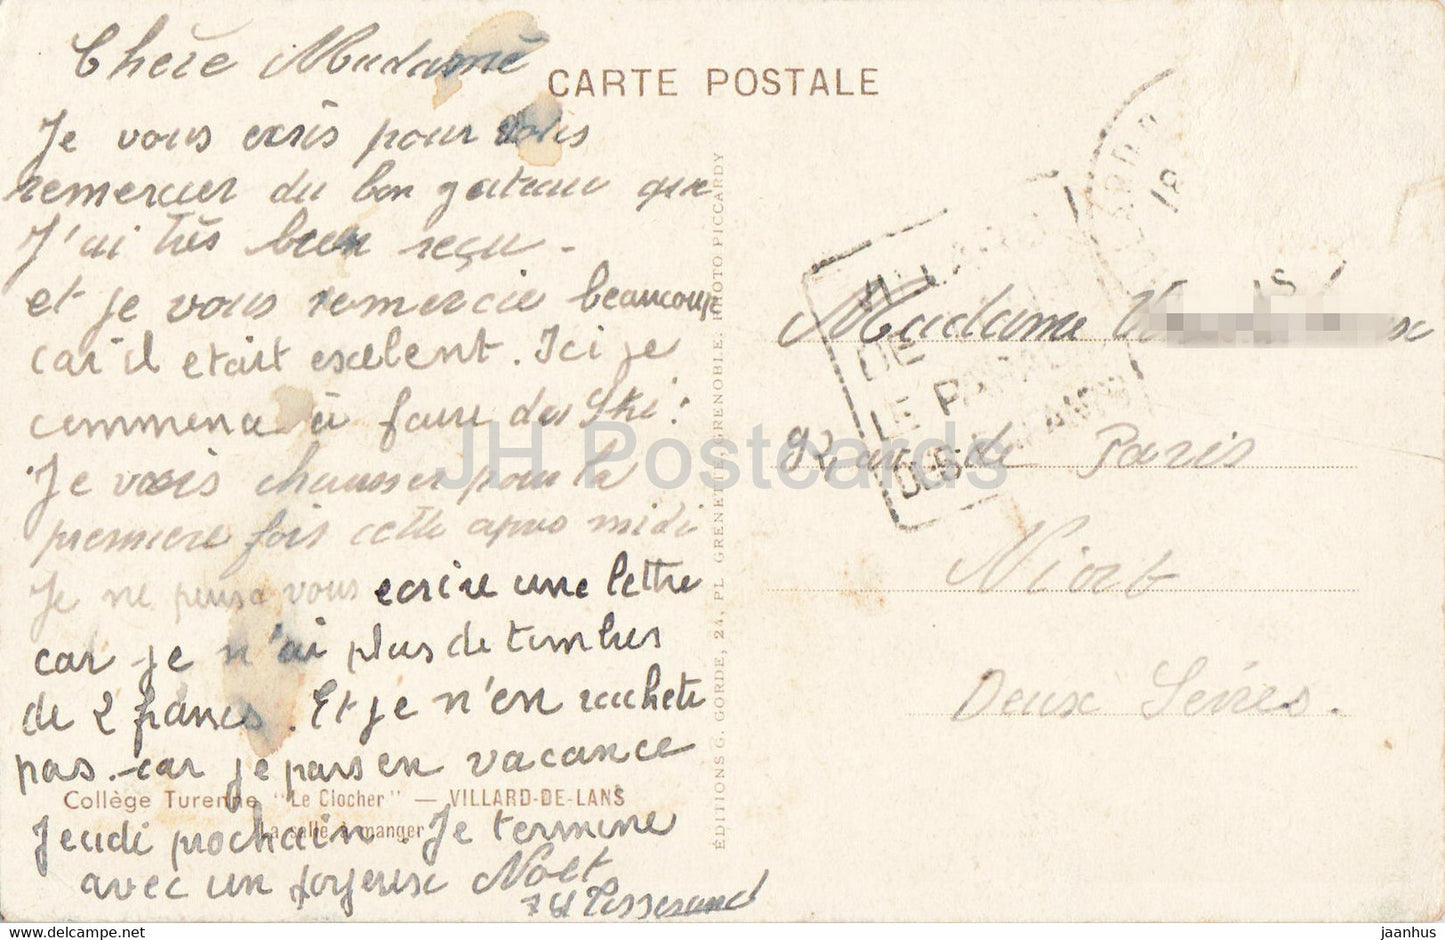 Chère Madame
CARTE POSTALE
Je vous exris pour vous
remercier du bon gateau que
J'ai très bien reçu -
et je vous remercie beaucoup
car il etait exelent. Ici je
commence à faire des Ski:
Je vais chausser pour la
premiere fois cette apres midi
Je ne peusa vous ecrire une lettre
car je n'ai plus de timbres
de 2 francs. Et je n'en rachete
pas. -car je pars en vacance
Collège Turenne "Le Clocher" — VILLARD-DE-LANS
La salle à manger
Jeudi prochain. Je termine
avec un joyeux Noël
Tisserand
ÉDITIONS G. GORDE, 24, PL. GRENETTE, GRENOBLE. PHOTO PICCARDY
VILLARD
18
VILLARD
DE
LE PARADIS
DES ENFANTS
Madame
92 rue de Paris
Niort
Deux Sèvres.
JH Postcards
www.delcampe.net
jaanhus